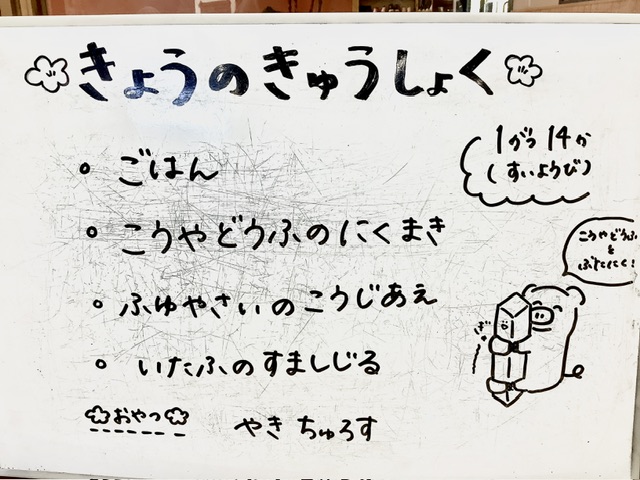 きょうのきゅうしょく
1がつ14か
(すいようび)
・ごはん
・こうやどうふのにくまき
・ふゆやさいのこうじあえ
・いたふのすましじる
おやつ
やきちゅろす
こうやどうふ
と
ぶたにく!
ぎゅ